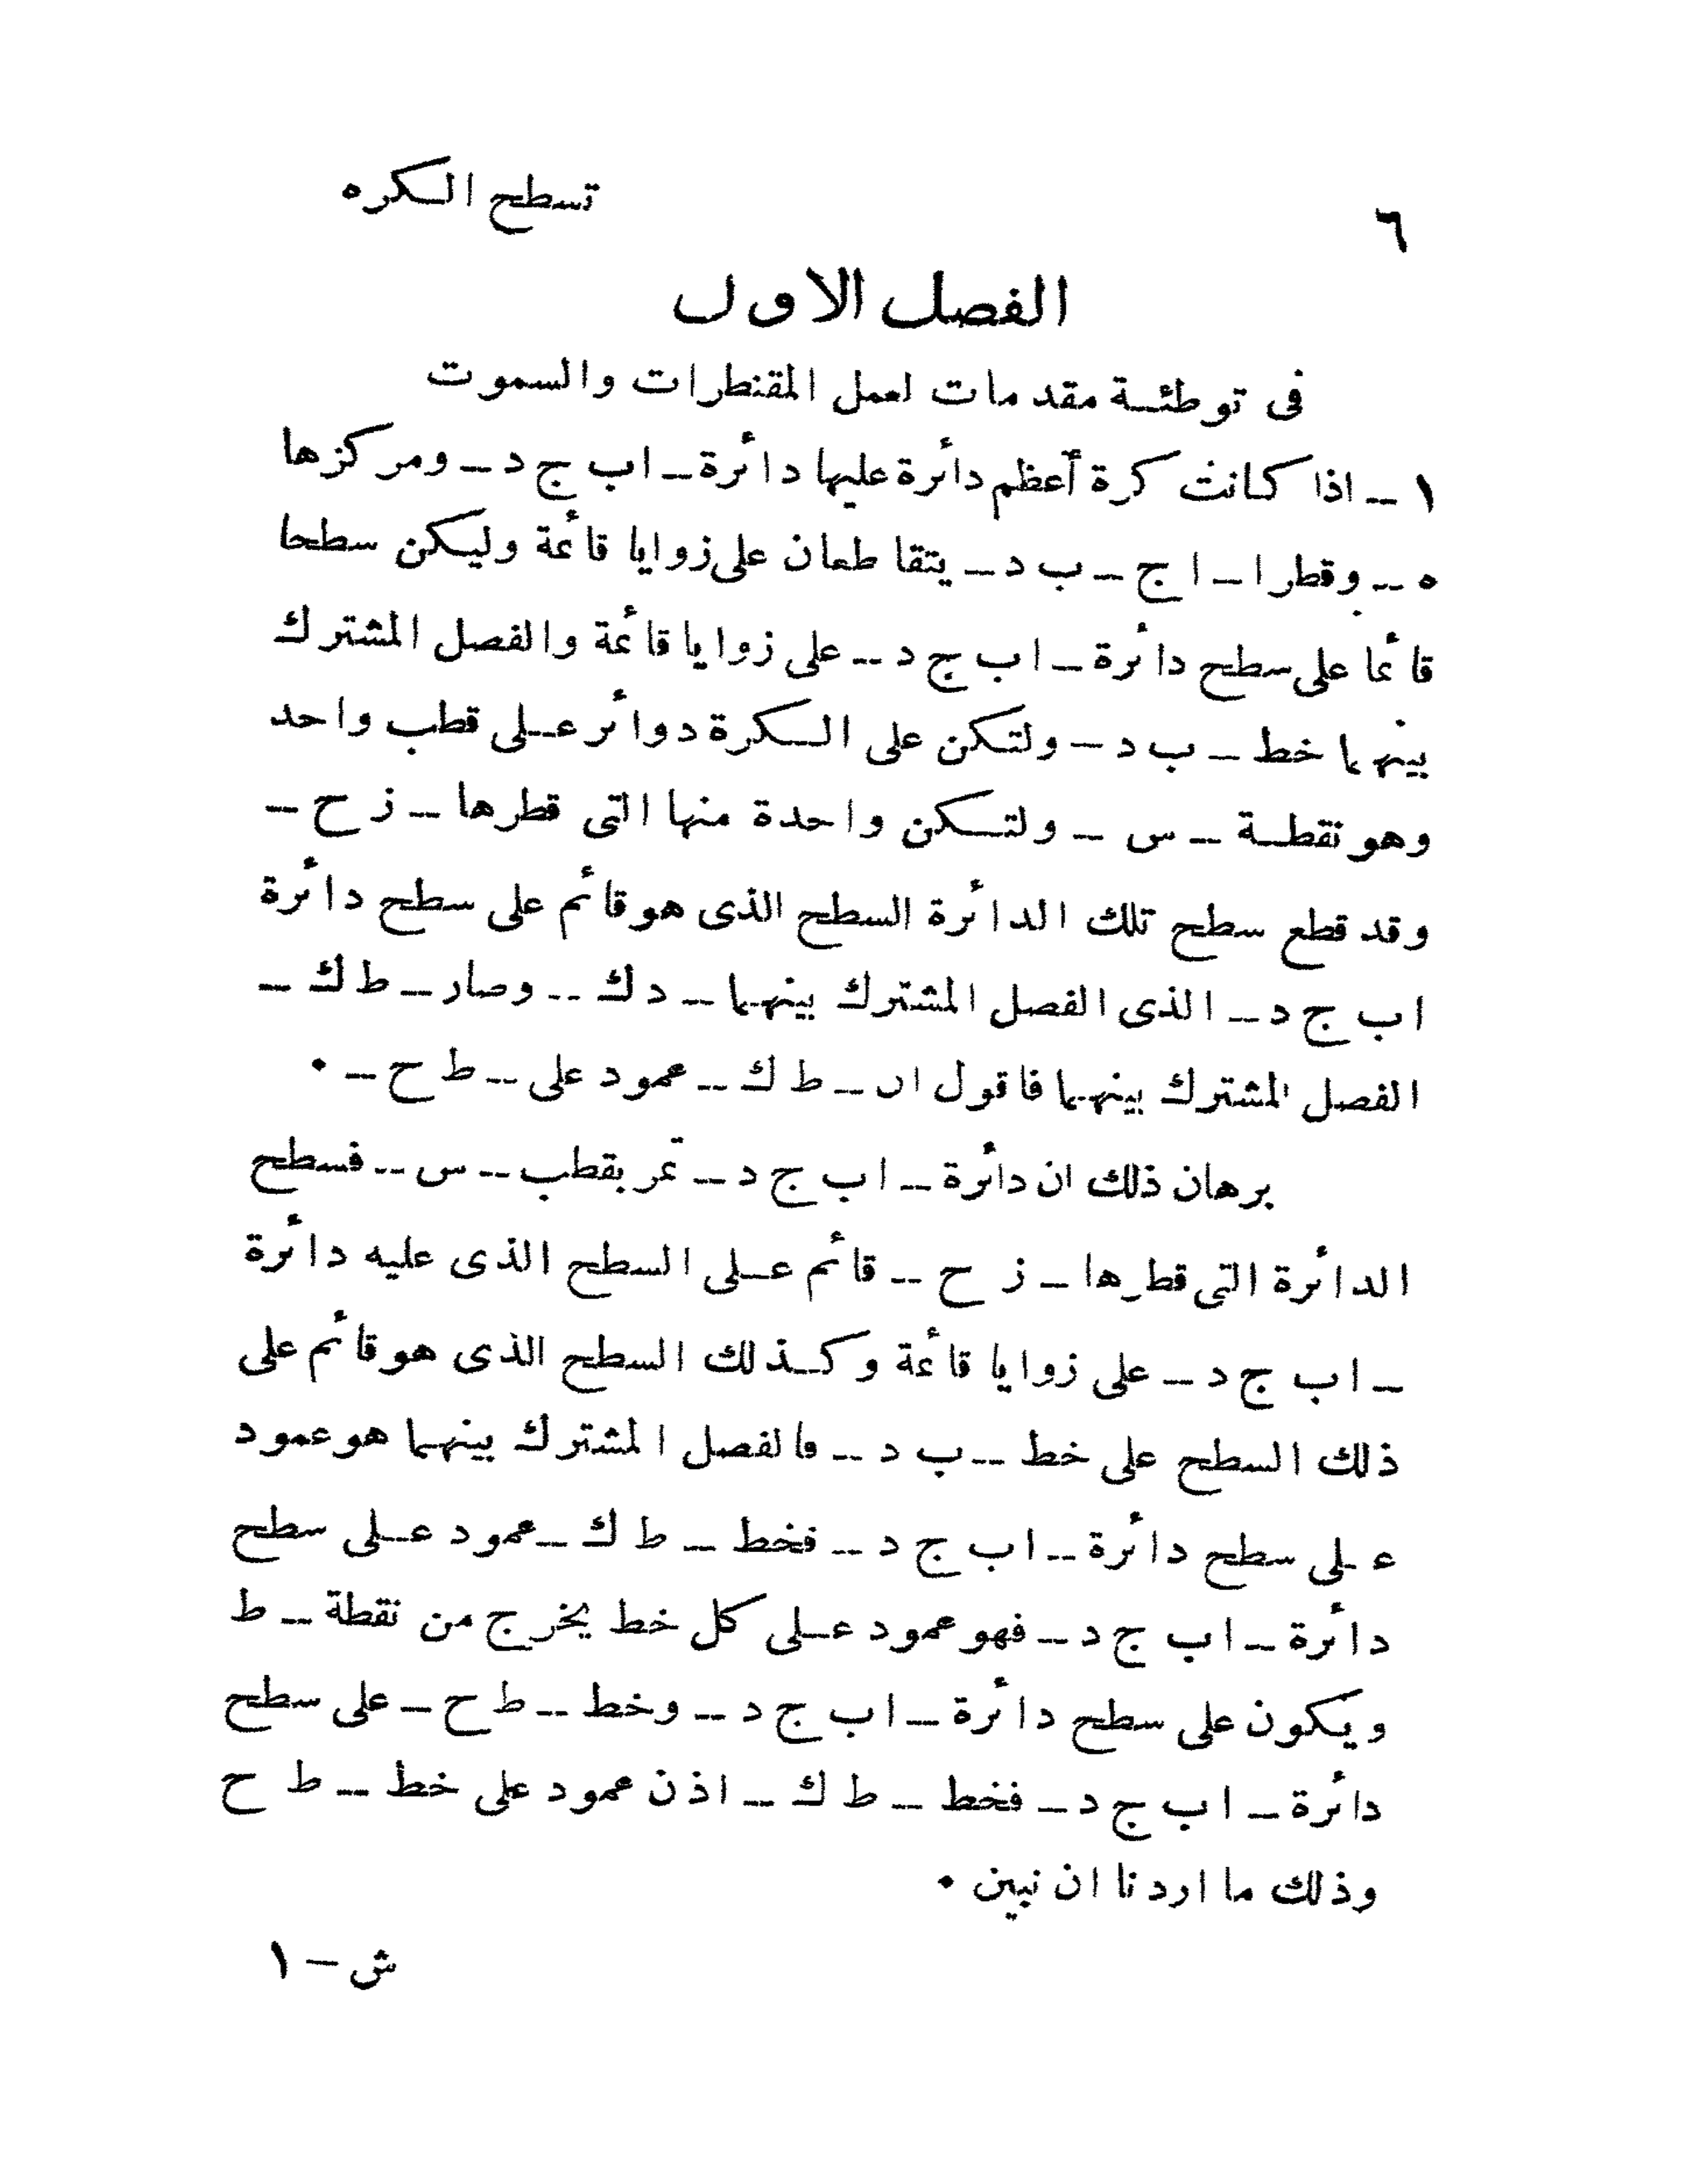 ٦ تسطح الكره
الفصل الاول
فى توطئة مقدمات لعمل المقنطرات والسموت
١ – اذا كانت كرة أعظم دائرة عليها دائرة – ا ب ج د – ومركزها
ه – وقطرا – ا ج – ب د – يتقاطعان على زوايا قائمة وليكن سطحا
قائما على سطح دائرة – ا ب ج د – على زوايا قائمة والفصل المشترك
بينهما خط – ب د – ولتكن على الكرة دوائر على قطب واحد
وهو نقطة – س – ولتكن واحدة منها التى قطرها – ز ح –
وقد قطع سطح تلك الدائرة السطح الذى هو قائم على سطح دائرة
ا ب ج د – الذى الفصل المشترك بينهما – د ك – وصار – ط ك –
الفصل المشترك بينهما فاقول ان – ط ك – عمود على – ط ح – ٠
برهان ذلك ان دائرة – ا ب ج د – تمر بقطب – س – فسطح
الدائرة التى قطرها – ز ح – قائم على السطح الذى عليه دائرة
– ا ب ج د – على زوايا قائمة وكذلك السطح الذى هو قائم على
ذلك السطح على خط – ب د – فالفصل المشترك بينهما هو عمود
على سطح دائرة – ا ب ج د – فخط – ط ك – عمود على سطح
دائرة – ا ب ج د – فهو عمود على كل خط يخرج من نقطة – ط
ويكون على سطح دائرة – ا ب ج د – وخط – ط ح – على سطح
دائرة – ا ب ج د – فخط – ط ك – اذن عمود على خط – ط ح
وذلك ما اردنا ان نبين ٠
ش – ١